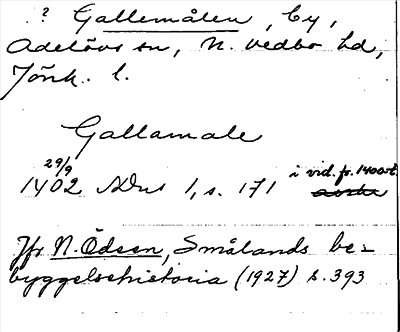 ? Gallemålen, by,
Adelövs sn, N. Vedbo hd,
Jönk. l.
Gallamale
29/9
1402 NDns 1, s. 171 i vid. fr. 1400-t.
Jfr N. Ödeen, Smålands be-
byggelsehistoria (1927) s. 393